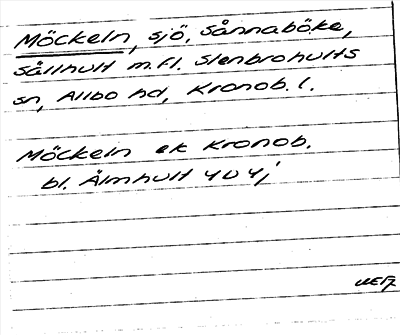 Möckeln, sjö, Sånnaböke,
Sållhult m.fl. Stenbrohults
sn, Allbo hd, Kronob. l.
Möckeln ek Kronob.
bl. Älmhult 4D4j